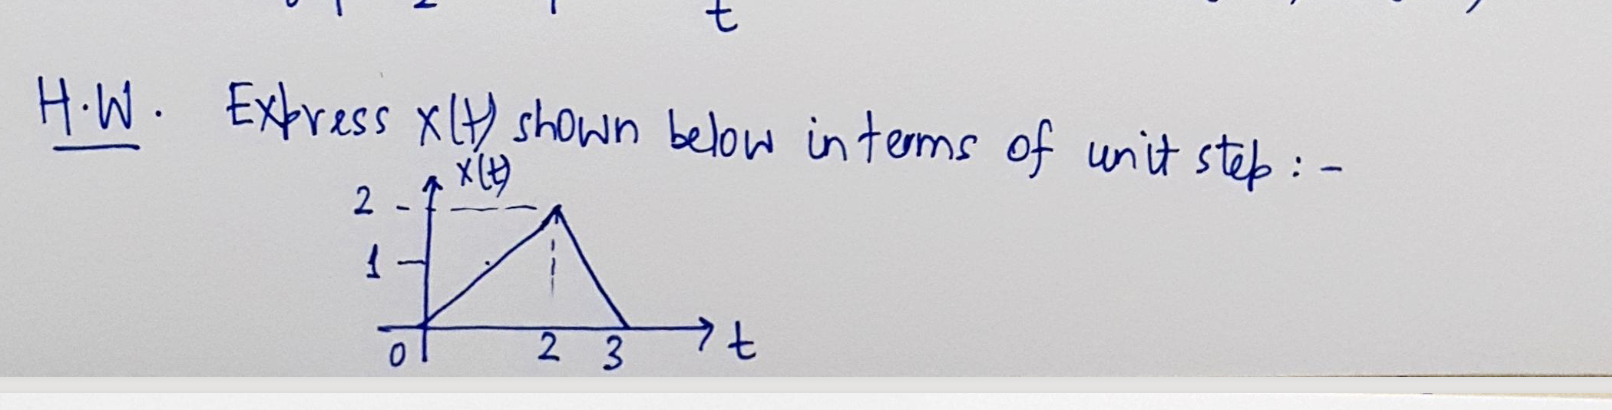 t
H.W. Express x(t) shown below in terms of unit step :-
x(t)
2
1
0 2 3 t